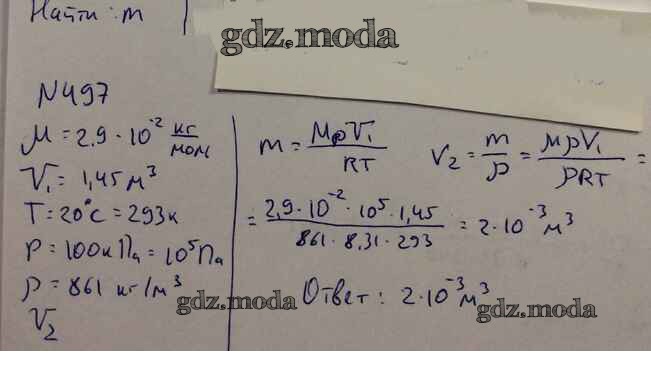 Найти: m
gdz.moda
N497
M = 2,9 · 10^-2 кг/моль
V₁ = 1,45 м³
T = 20°C = 293к
P = 100кПа = 10⁵Па
ρ = 861 кг/м³
V₂
m = MρV₁/RT V₂ = m/ρ = MρV₁/ρRT =
= 2,9 · 10^-2 · 10⁵ · 1,45 / 861 · 8,31 · 293 = 2 · 10^-3 м³
Ответ: 2 · 10^-3 м³
gdz.moda
gdz.moda